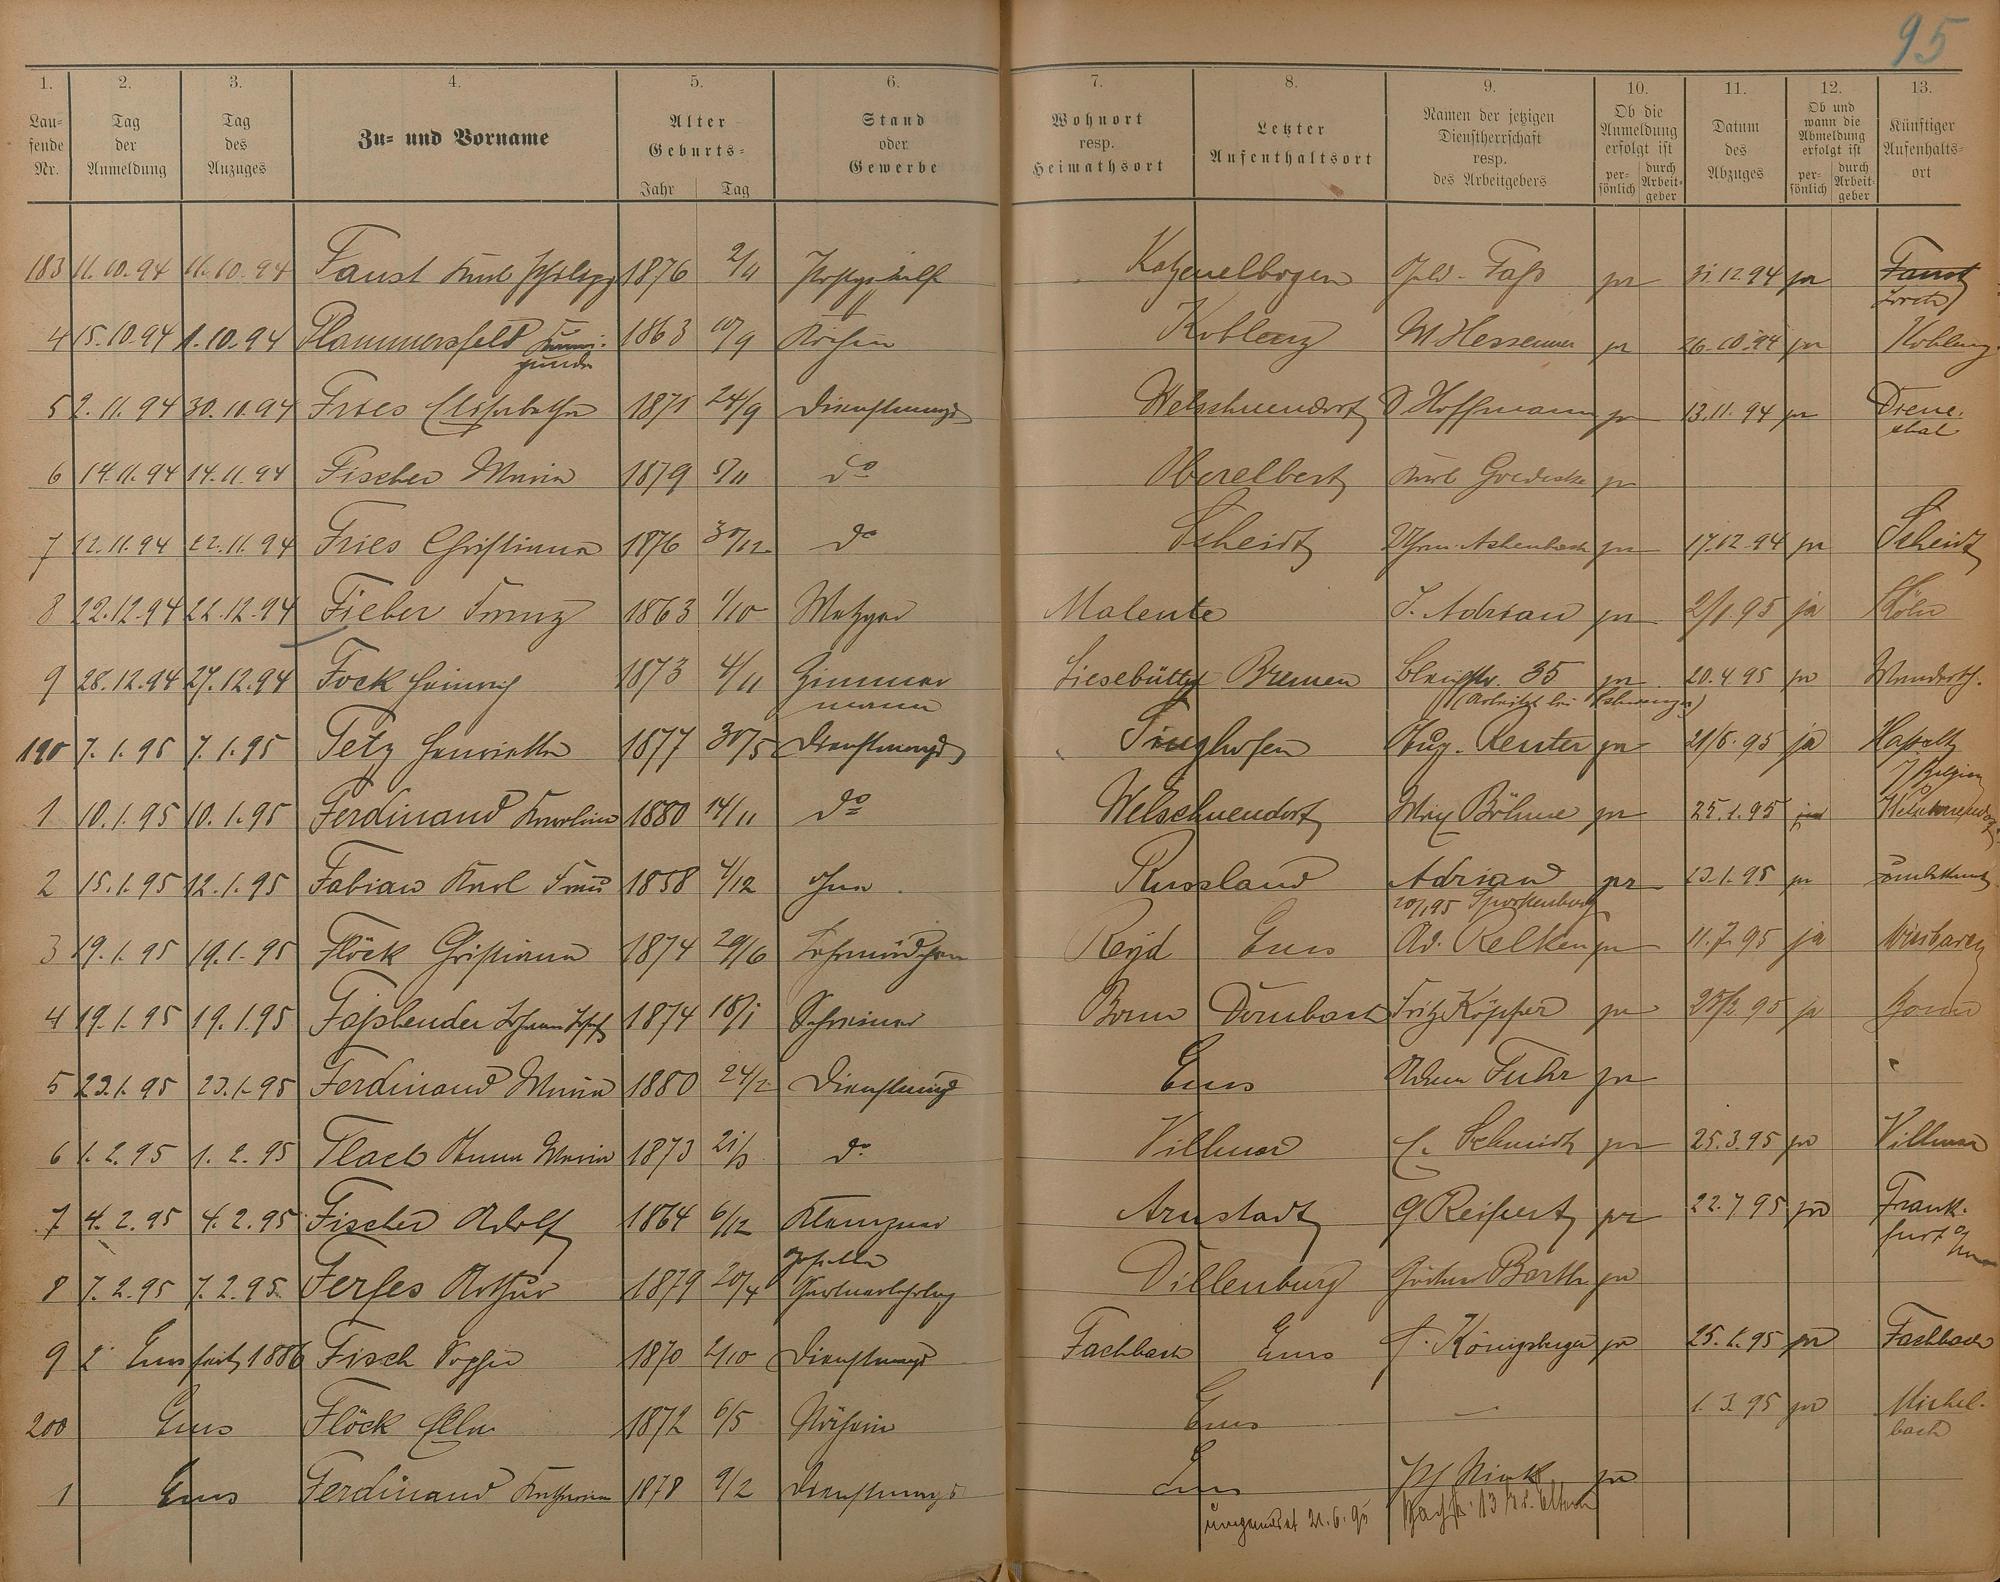 95
1. 2. 3. 4. 5. 6. 7. 8. 9. 10. 11. 12. 13.
Lau=
fende
Nr.
Tag
der
Anmeldung
Tag
des
Anzuges
Zu= und Vorname
Alter
Geburts=
Jahr Tag
Stand
oder
Gewerbe
Wohnort
resp.
Heimathsort
Letzter
Aufenthaltsort
Namen der jetzigen
Dienstherrschaft
resp.
des Arbeitgebers
Ob die
Anmeldung
erfolgt ist
per=
sönlich
durch
Arbeit=
geber
Datum
des
Abzuges
Ob und
wann die
Abmeldung
erfolgt ist
per=
sönlich
durch
Arbeit=
geber
Künftiger
Aufenthalts=
ort
183 11.10.94 11.10.94 Faust Karl Philipp 1876 2/11 Katzenelbogen ja 31.12.94 ja
4 15.10.94 1.10.94 Flammersfeld Kuni= 1863 10/9 Köchin Koblenz M Hessemer ja 26.10.94 ja Koblenz
gunde
5 2.11.94 30.10.94 Fries Elisabetha 1871 24/9 Dienstmagd Welschneudorf Hoffmann ja 13.11.94 ja Diene.
thal
6 14.11.94 14.11.94 Fischer Maria 1879 5/11 do Oberelbert Karl ja
7 12.11.94 12.11.94 Fries Christiana 1876 30/12 do Scheidt ja 17.12.94 ja Scheidt
8 22.12.94 22.12.94 Fieber Franz 1863 1/10 Metzger Malente J. Adrian ja 2/1.95 ja Köln
9 28.12.94 27.12.94 Fock Heinrich 1873 4/11 Zimmer Liesebüttel Bremen 35 ja 20.4.95 ja
mann
190 7.1.95 7.1.95 Fetz Henriette 1877 30/5 Dienstmagd Singhofen Aug. Reuter ja 21/6.95 ja Hasselt
Belgien
1 10.1.95 10.1.95 Ferdinand Karolina 1880 14/11 do Welschneudorf Max Böhme ja 25.1.95 ja Welschneudorf
2 15.1.95 12.1.95 Fabian Karl 1858 4/12 ohne Russland Adrian ja 23.1.95 ja unbekannt
20/1 95 Sporkenburg
3 19.1.95 19.1.95 Flöck Christiana 1874 29/6 Lehrmädchen Ems Ad. Relken ja 11.7.95 ja Wiesbaden
4 19.1.95 19.1.95 Faßbender Johann Josef 1874 18/1 Schreiner Bonn Dornbach Fritz Köpper ja 25/2 95 ja Bonn
5 23.1.95 23.1.95 Ferdinand Maria 1880 24/2 Dienstmagd Ems Adam Fuhr ja
6 1.2.95 1.2.95 Anna Maria 1873 21/3 do Villmar C. Schmidt ja 25.3.95 ja Villmar
7 4.2.95 4.2.95 Fischer Adolf 1864 6/12 Klempner Arnstadt G Reifert ja 22.7 95 ja Frank.
gehülfe furt a/Main
8 7.2.95 7.2.95. Ferses Arthur 1879 20/4 Gärtnerlehrling Dillenburg Gärtner Barth ja
9 2 Ems seit 1886 Fisch Sophie 1870 2/10 Dienstmagd Fachbach Ems Königsberger ja 25.1.95 ja Fachbach
200 Ems Flöck Ella 1872 6/5 Näherin Ems — 1.3.95 ja Michel-
bach
1 Ems Ferdinand Katharina 1878 9/2 Dienstmagd Ems ja
umgemeldet 21.6.95 13 Eltern